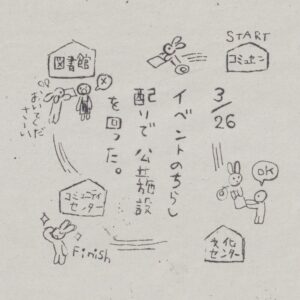 START
コミュセン
3/26
イベントのちらし
配りで公共施設
を回った。
OK
文化
センター
コミュニティ
センター
Finish
図書館